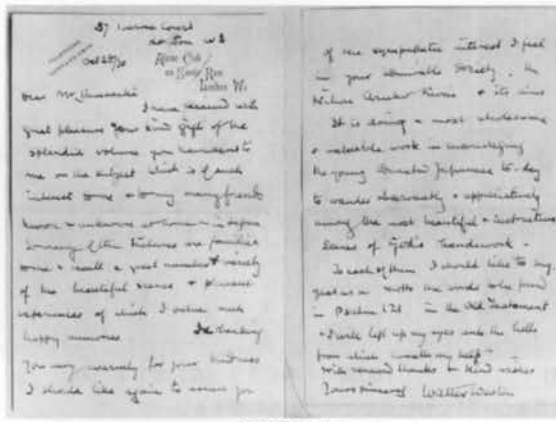 57 Iverna Court
London W 8
Oct 28/30
Alpine Club
Savile Row
London W1
Dear Mr
I have received with
great pleasure your kind gift of the
splendid volume you have sent to
me on the subject which is of such
interest to me & to my many friends
known & unknown at home & in Japan
So many of the pictures are familiar
to me & recall a great number & variety
of the beautiful scenes & pleasant
experiences of which I value such
happy memories
Thanking
you very warmly for your kindness
I should like again to assure you
of the sympathetic interest I feel
in your admirable Society, the
& its aims
It is doing a most wholesome
& valuable work in encouraging
the young Japanese to-day
to wander observantly & appreciatively
among the most beautiful & instructive
scenes of God's handiwork.
To each of them I would like to
as a motto the words to be found
in Psalm 121 in the Old Testament
I will lift up my eyes unto the hills
from which cometh my help
With renewed thanks & kind wishes
Yours sincerely Walter Weston